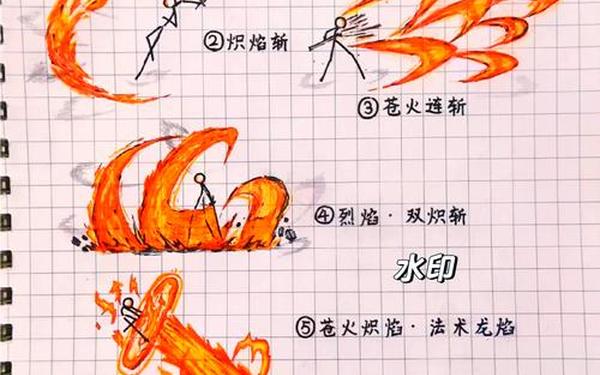 ②炽焰斩
③苍火连斩
④烈焰·双炽斩
水印
⑤苍火炽焰·法术龙焰